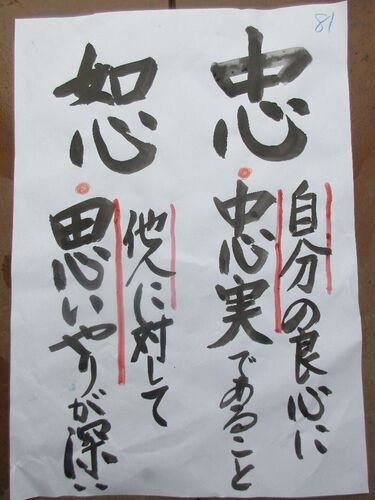 81
忠
自分の良心に
忠実であること
恕
他人に対して
思いやりが深い